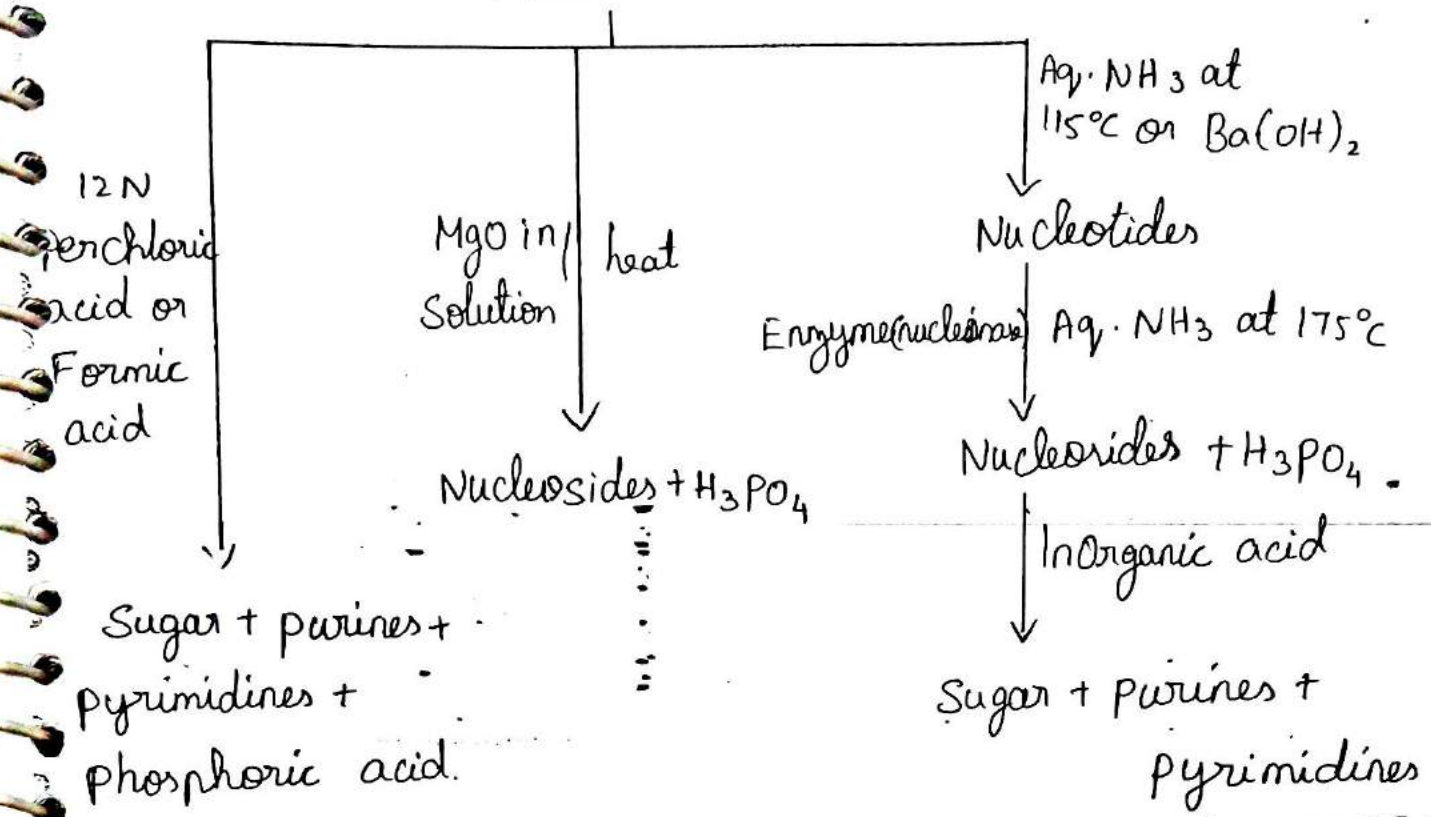 12N
perchloric
acid or
Formic
acid
Sugar + purines +
pyrimidines +
phosphoric acid.
MgO in
Solution
heat
Nucleosides + H₃PO₄
Aq. NH₃ at
115°C or Ba(OH)₂
Nucleotides
Enzyme Aq. NH₃ at 175°C
Nucleosides + H₃PO₄.
Inorganic acid
Sugar + Purines +
Pyrimidines